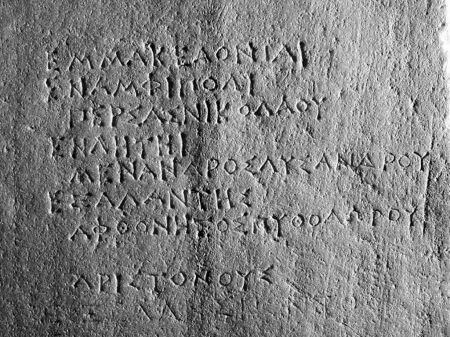 ΕΜΜΑΚΕΔΟΝΙΑΙ
ΕΝΑΜΦΙΠΟΛΙ
ΠΕΡΣΑΣΝΙΚΟΛΑΟΥ
ΕΝΑΙΓΗΙ
ΜΕΝΑΝΔΡΟΣΛΥΣΑΝΔΡΟΥ
ΕΞΑΛΑΝΤΗΣ
ΑΦΘΟΝΗΤΟΣΠΥΘΟΔΩΡΟΥ
ΑΡΙΣΤΟΝΟΥΣ